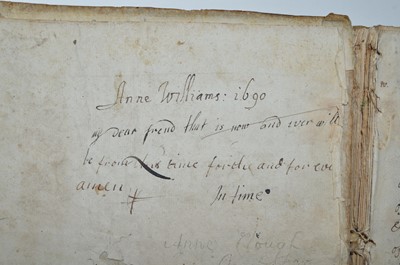 Anne Williams: 1690
my dear frend that is now and ever will
be from this time forthe and for eve
amen In time
Anne Clough